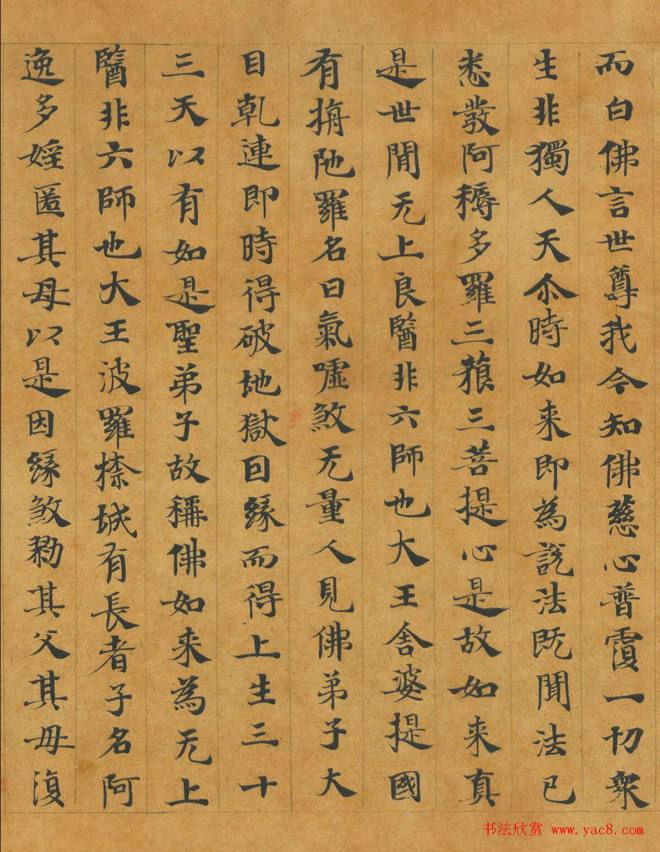 而白佛言世尊我今知佛慈心普覆一切衆
生非獨人天尒時如来即為說法既聞法已
悉發阿耨多羅三藐三菩提心是故如来真
是世間无上良醫非六師也大王舍婆提國
有旃陁羅名曰氣噓煞无量人見佛弟子大
目乹連即時得破地獄因緣而得上生三十
三天以有如是聖弟子故稱佛如来為无上
醫非六師也大王波羅㮈城有長者子名阿
逸多婬匿其母以是因緣煞戮其父其母復
书法欣赏 www.yac8.com